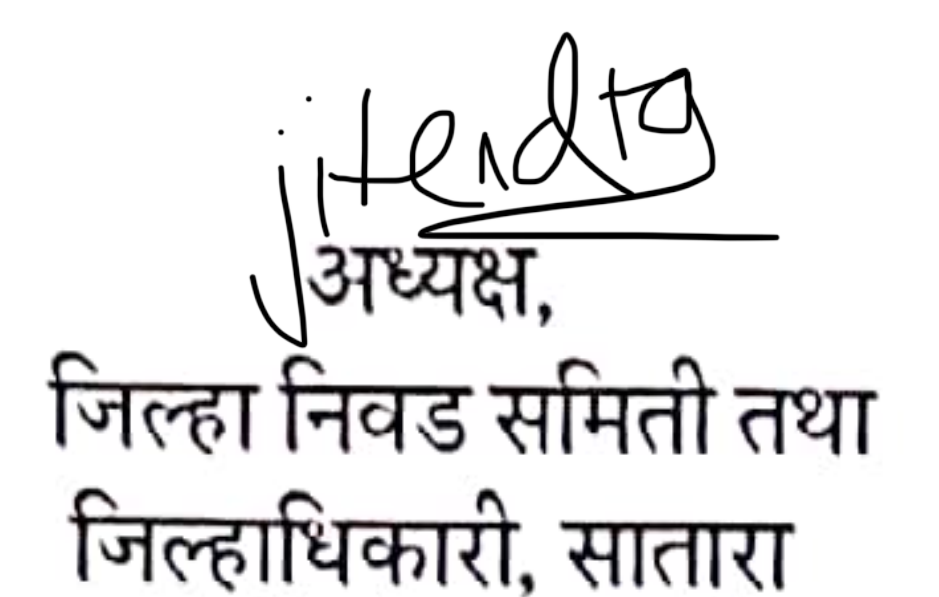 jitendra
अध्यक्ष,
जिल्हा निवड समिती तथा
जिल्हाधिकारी, सातारा